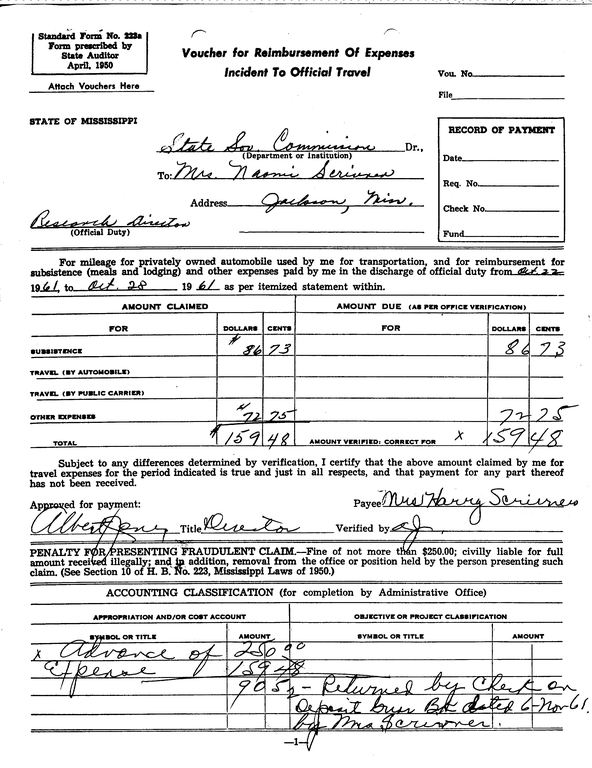 Standard Form No. 223a
Form prescribed by
State Auditor
April, 1950
Attach Vouchers Here
Voucher for Reimbursement Of Expenses
Incident To Official Travel
Vou. No.
File
STATE OF MISSISSIPPI
State Sov. Commission Dr.,
(Department or Institution)
To: Mrs. Naomi Scrivner
Address Jackson, Miss.
Research Director
(Official Duty)
RECORD OF PAYMENT
Date
Req. No.
Check No.
Fund
For mileage for privately owned automobile used by me for transportation, and for reimbursement for
subsistence (meals and lodging) and other expenses paid by me in the discharge of official duty from Oct. 22
1961, to Oct. 28 1961 as per itemized statement within.
AMOUNT CLAIMED AMOUNT DUE (AS PER OFFICE VERIFICATION)
FOR DOLLARS CENTS FOR DOLLARS CENTS
SUBSISTENCE $ 86 73 86 73
TRAVEL (BY AUTOMOBILE)
TRAVEL (BY PUBLIC CARRIER)
OTHER EXPENSES $ 72 75 72 75
TOTAL $ 159 48 AMOUNT VERIFIED: CORRECT FOR X 159 48
Subject to any differences determined by verification, I certify that the above amount claimed by me for
travel expenses for the period indicated is true and just in all respects, and that payment for any part thereof
has not been received.
Approved for payment: Payee Mrs Harry Scrivner
Albert Jones Title Director Verified by
PENALTY FOR PRESENTING FRAUDULENT CLAIM.—Fine of not more than $250.00; civilly liable for full
amount received illegally; and in addition, removal from the office or position held by the person presenting such
claim. (See Section 10 of H. B. No. 223, Mississippi Laws of 1950.)
ACCOUNTING CLASSIFICATION (for completion by Administrative Office)
APPROPRIATION AND/OR COST ACCOUNT OBJECTIVE OR PROJECT CLASSIFICATION
SYMBOL OR TITLE AMOUNT SYMBOL OR TITLE AMOUNT
x Advance of 250 00
Expense 159 48
90 52 - Returned by Check on
Deposit Guar Bk dated 6-Nov 61
by Mrs Scrivner.
—1—